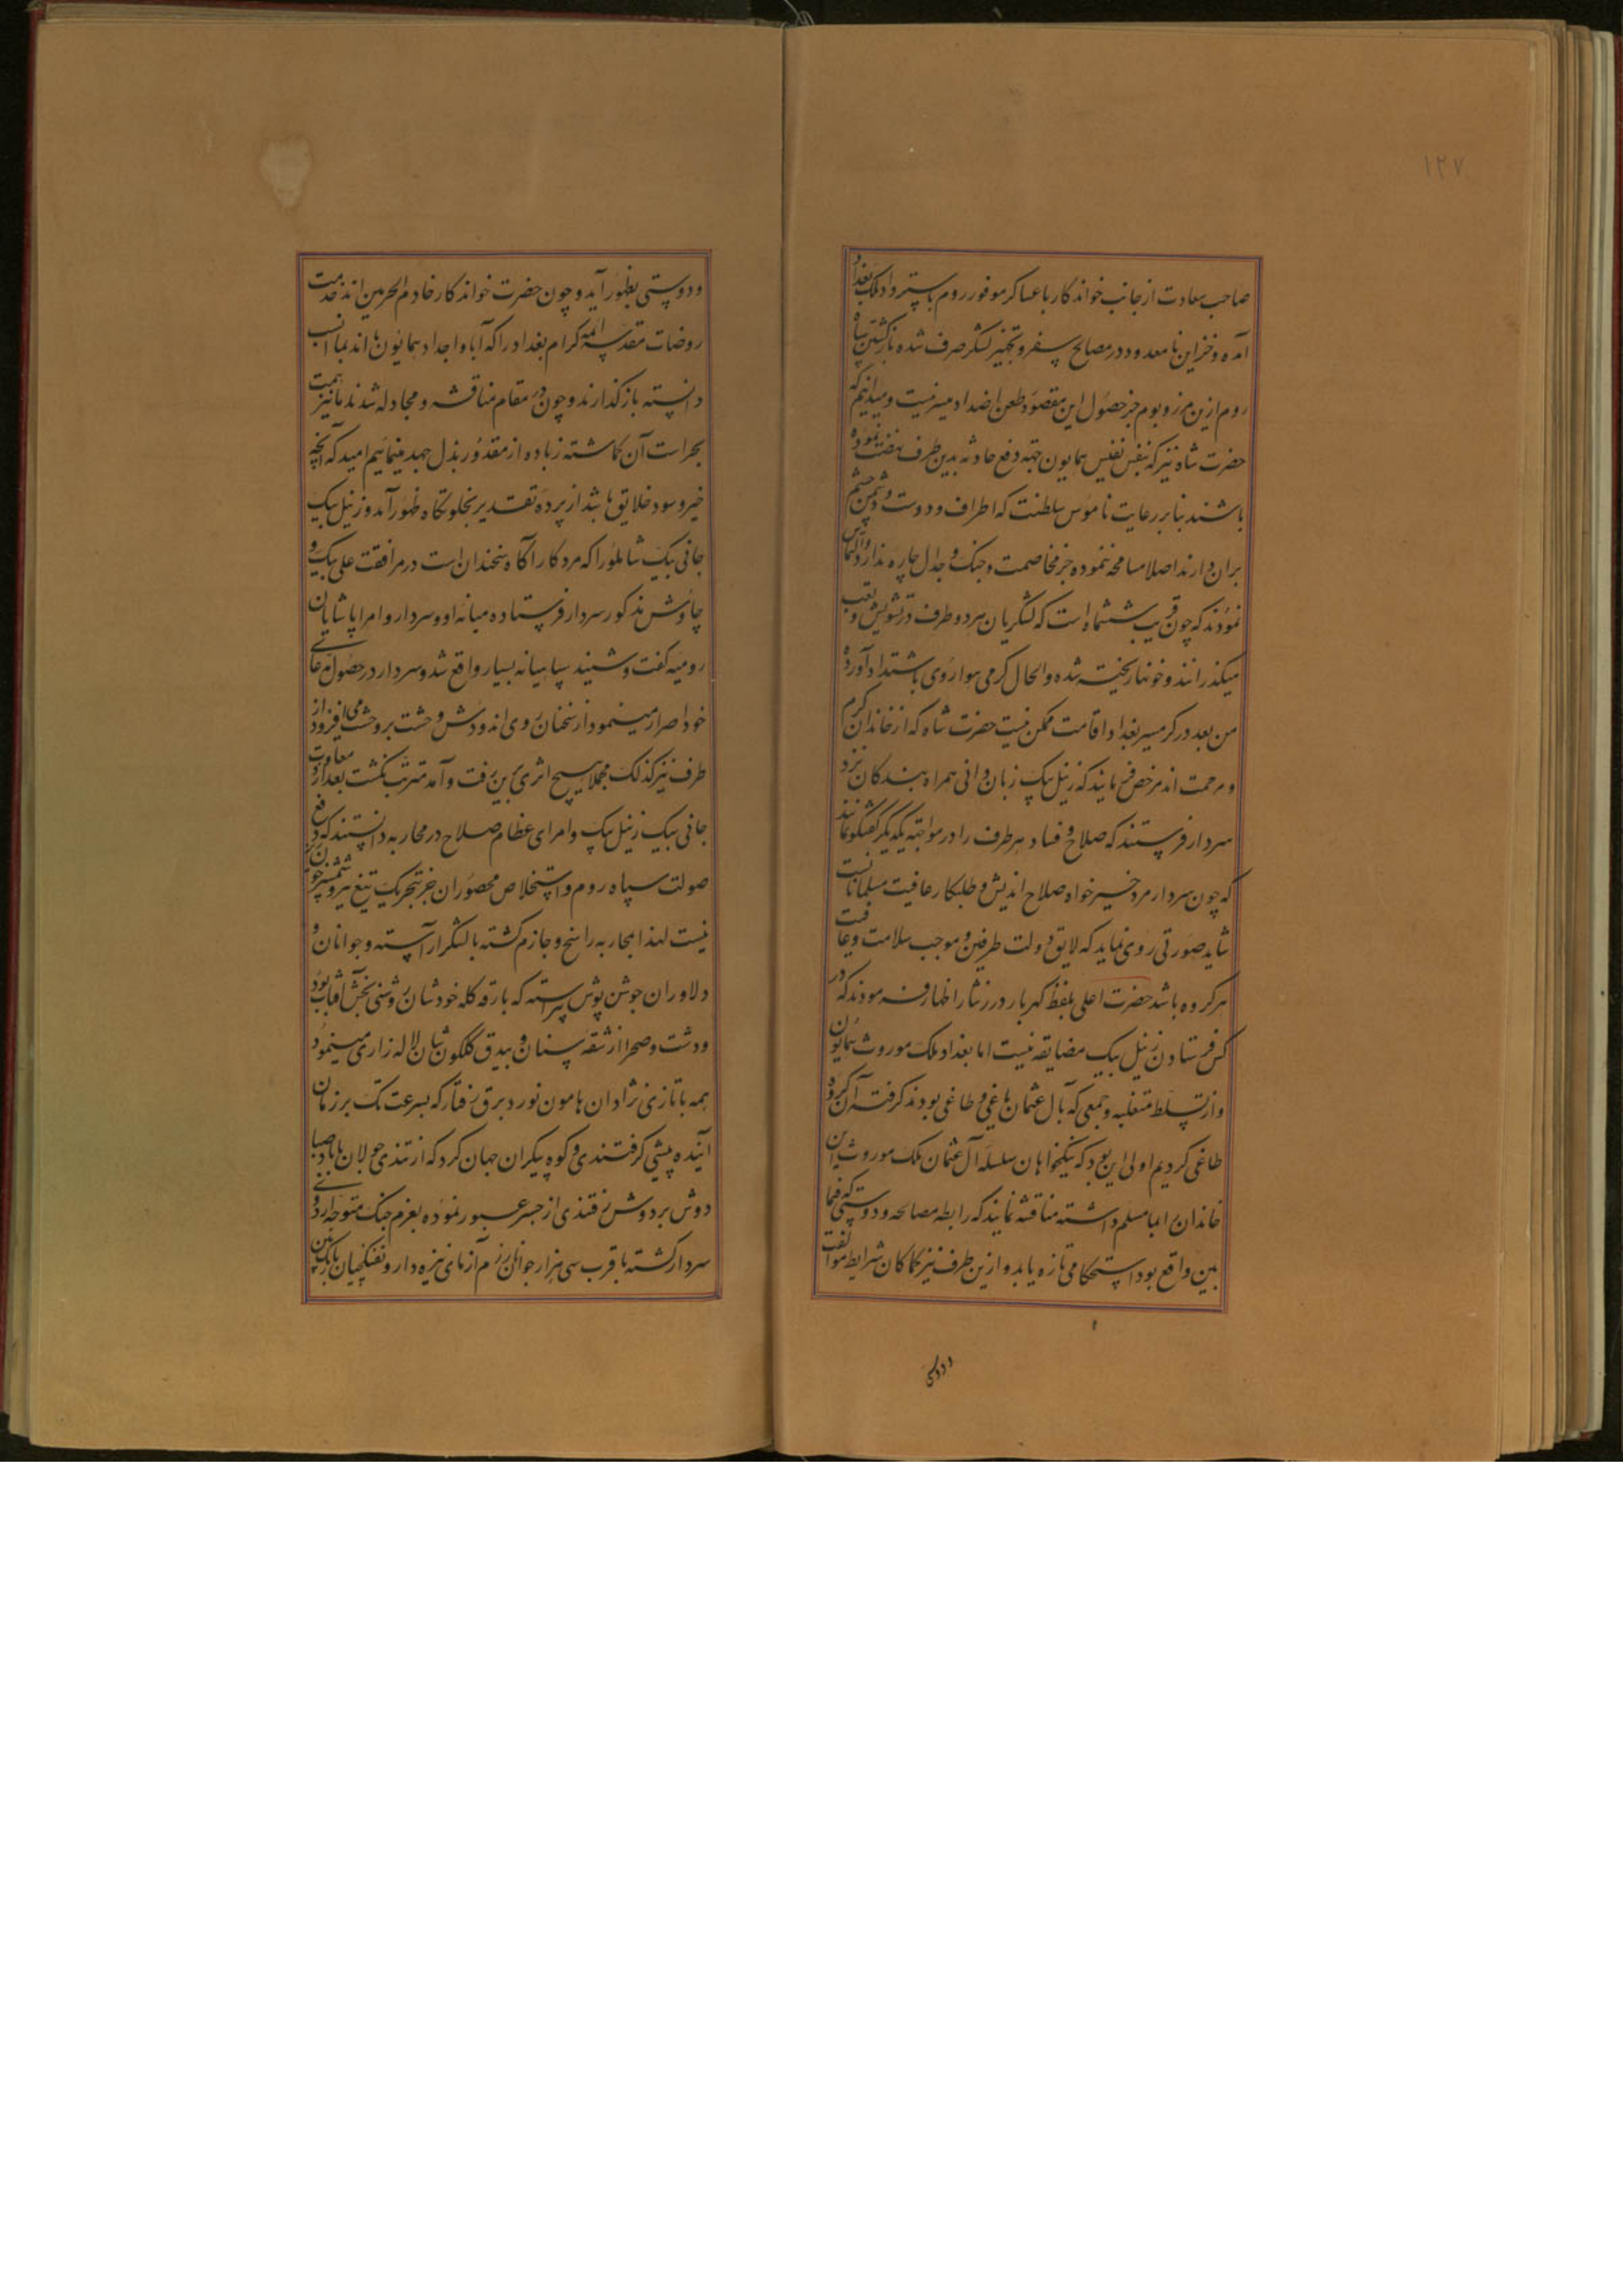 ۱۲۷
صاحب سعادت از جانب خواندکار با عساکر موفور روم باسترداد ملک بغداد
آمده و خزاین نامعدود در مصالح سفر و تجهیز لشکر صرف شده بازگشتن سپاه
روم ازین مرز و بوم جز حصول این مقصود و طعن اضداد میسر نیست و میدانیم که
حضرت شاه نیز که بنفس نفیس همایون جهة دفع حادثه بدین طرف نهضت نموده
باشند بنابر رعایت ناموس سلطنت که اطراف و دوست و دشمن چشم
بران دارند اصلا مسامحه ننموده جز مخاصمت و جنک و جدال چاره ندارد و التماس
نمودند که چون قریب ششماه است که لشگریان هر دو طرف در تشویش و تعب
میکذرانند و خونها ریخته شده و الحال گرمی هوا روی باشتداد آورده
من بعد در گرمسیر بغداد اقامت ممکن نیست حضرت شاه که از خاندان کرم
و مرحمت اند مرخص فرمایند که زنیل بیک زبان دانی همراه بندکان نزد
سردار فرستند که صلاح و فساد هر طرف را در مواجهه یکدیگر گفتگو نمایند
که چون سردار مرد خیر خواه صلاح اندیش و طلبکار عافیت مسلمانانست
شاید صورتی روی نماید که لایق دولت طرفین و موجب سلامت و عافیت
هر گروه باشد حضرت اعلی بلفظ گهربار درر نثار اظهار فرمودند که در
کس فرستادن زنیل بیک مضایقه نیست اما بغداد ملک موروث همایون
و از تسلط متغلبه و جمعی که بآل عثمان یاغی و طاغی بودند کرفته آن کروه
طاغی کردیم اولی این بود که نیکخواهان سلسله آل عثمان ملک موروث این
خاندان را بما مسلم داشته مناقشه نمایند که رابطه مصالحه و دوستی که فیما
بین واقع بود استحکامی تازه یابد و ازین طرف نیز کماکان شرایط موافقت
و دوستی
و دوستی بظهور آید و چون حضرت خواندکار خادم الحرمین اند خدمت
روضات مقدسه ائمه کرام بغداد را که آبا و اجداد همایون ما اند بما انسب
دانسته بازکذارند و چون در مقام مناقشه و مجادله شدند ما نیز همت
بحراست آن کماشته زیاده از مقدور بذل جهد مینمائیم امید که آنچه
خیر و سود خلایق باشد از پرده تقدیر بجلوتکاه ظهور آمد و زنیل بیک
جانی بیک شاملو را که مرد کار آگاه سخندان است در مرافقت علی بیک و
چاوش مذکور سردار فرستاده میانه او و سردار و امرا پاشایان
رومیه گفت و شنید سپاهیانه بسیار واقع شد و سردار در حصول مدعای
خود اصرار مینمود از سخنان روی اندودش وحشت بر وحشت می افزود از
طرف نیز کذلک مجملا هیچ اثری برین رفت و آمد مترتب نگشت بعد از معاودت
جانی بیک زنیل بیک و امرای عظام صلاح در محاربه دانستند که دفع
صولت سپاه روم و استخلاص محصوران جز بتحریک تیغ تیز و شمشیر خون
نیست لهذا بمحاربه راسخ و جازم گشته با لشگر آراسته و جوانان و
دلاوران جوشن پوش پیراسته که بارقه کله خودشان روشنی بخش آفتاب بود
و دشت و صحرا از شقه سنان و بیدق گلگون شان لاله زاری مینمود
همه با تازی نژادان هامون نورد برق رفتار که بسرعت تک بر زمان
آینده پیشی گرفتندی و کوه پیکران جهان گرد که از تندی جولان با باد صبا
دوش بردوش رفتندی از جسر عبور نموده بعزم جنک متوجه اردوی
سردار گشته با قرب سی هزار جوانان رزم آزمای نیزه دار و تفنگچیان